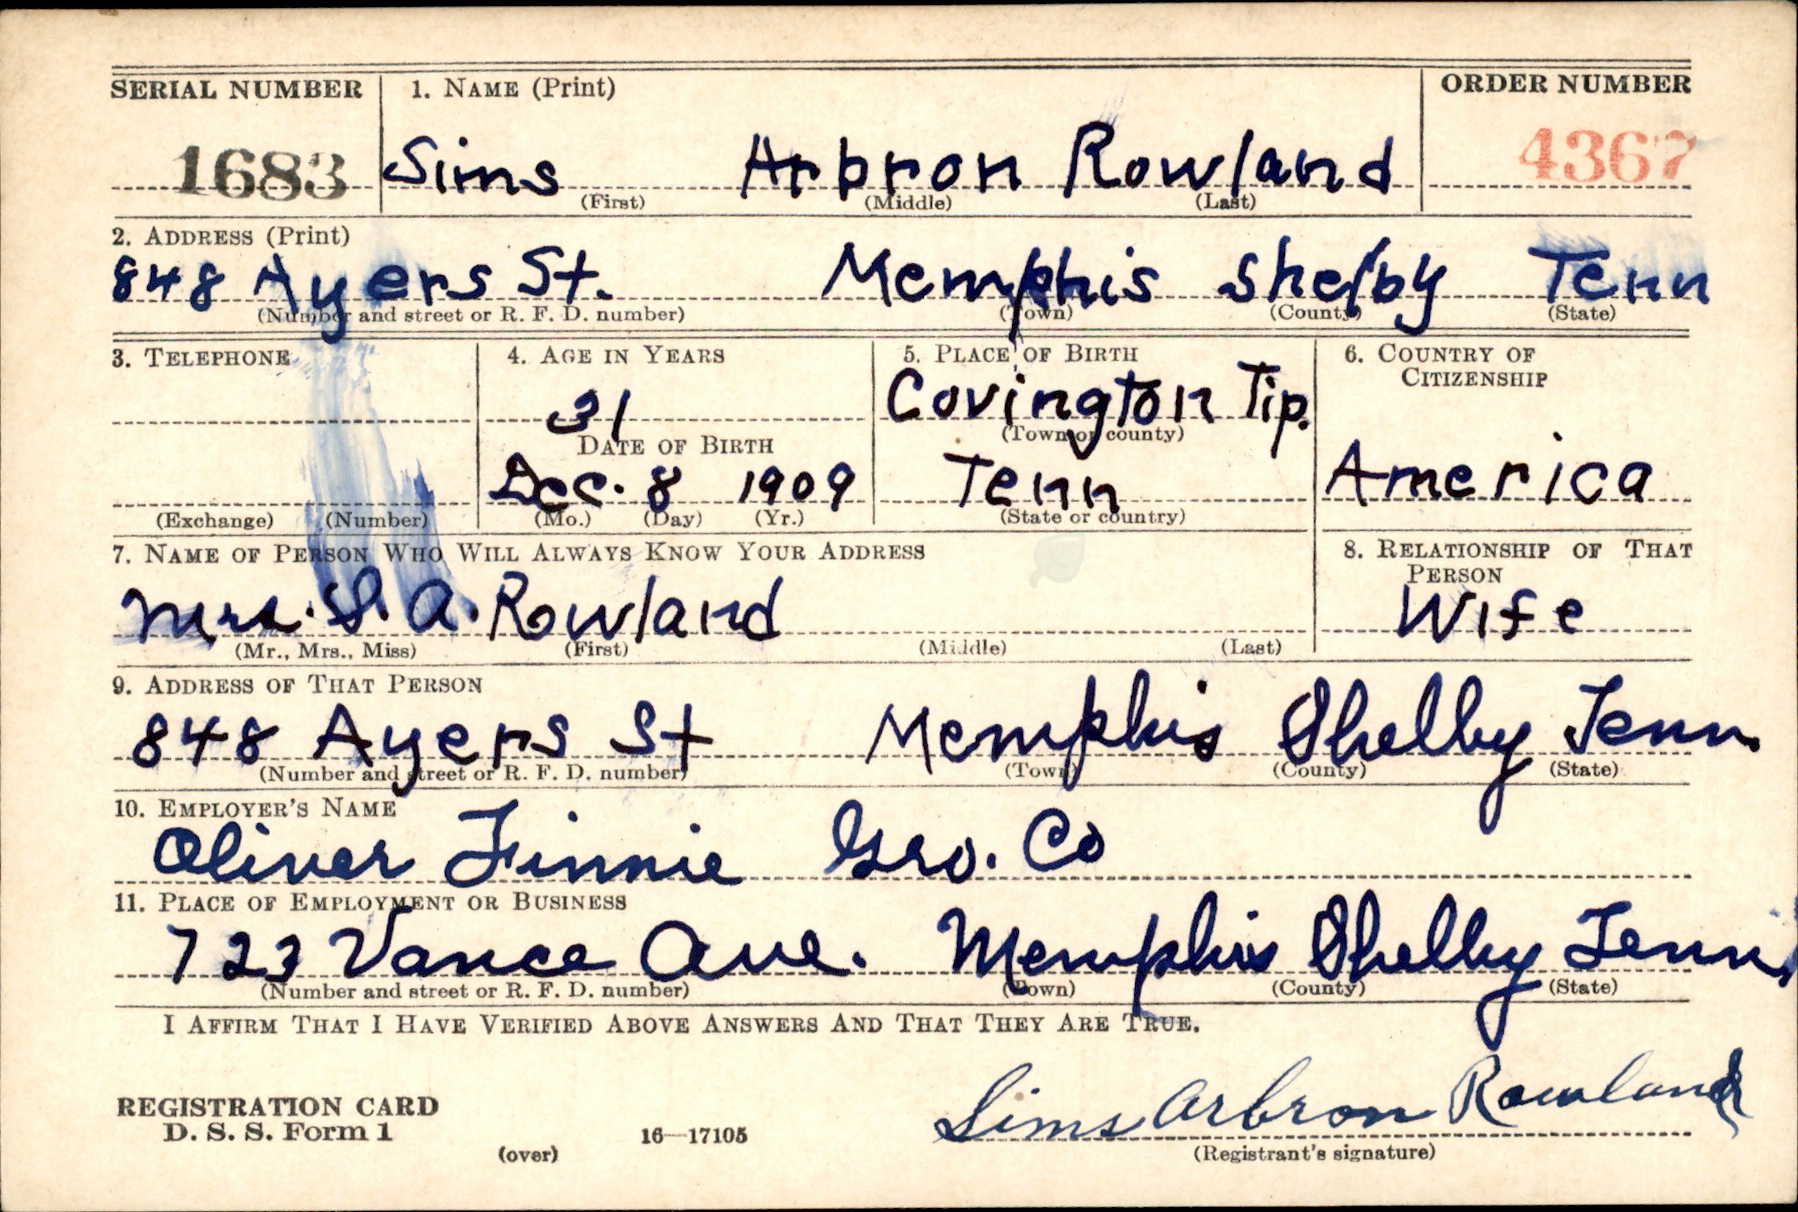 SERIAL NUMBER 1. NAME (Print) ORDER NUMBER
1683 Sims Arbron Rowland 4367
(First) (Middle) (Last)
2. ADDRESS (Print)
848 Ayers St. Memphis Shelby Tenn
(Number and street or R. F. D. number) (Town) (County) (State)
3. TELEPHONE 4. AGE IN YEARS 5. PLACE OF BIRTH 6. COUNTRY OF CITIZENSHIP
31 Covington Tip.
DATE OF BIRTH (Town or county)
Dec. 8 1909 Tenn America
(Exchange) (Number) (Mo.) (Day) (Yr.) (State or country)
7. NAME OF PERSON WHO WILL ALWAYS KNOW YOUR ADDRESS 8. RELATIONSHIP OF THAT PERSON
Mrs. S. A. Rowland Wife
(Mr., Mrs., Miss) (First) (Middle) (Last)
9. ADDRESS OF THAT PERSON
848 Ayers St Memphis Shelby Tenn.
(Number and street or R. F. D. number) (Town) (County) (State)
10. EMPLOYER'S NAME
Oliver Finnie Gro. Co
11. PLACE OF EMPLOYMENT OR BUSINESS
723 Vance Ave. Memphis Shelby Tenn.
(Number and street or R. F. D. number) (Town) (County) (State)
I AFFIRM THAT I HAVE VERIFIED ABOVE ANSWERS AND THAT THEY ARE TRUE.
Sims Arbron Rowland
REGISTRATION CARD
D. S. S. Form 1 16—17105
(over) (Registrant's signature)